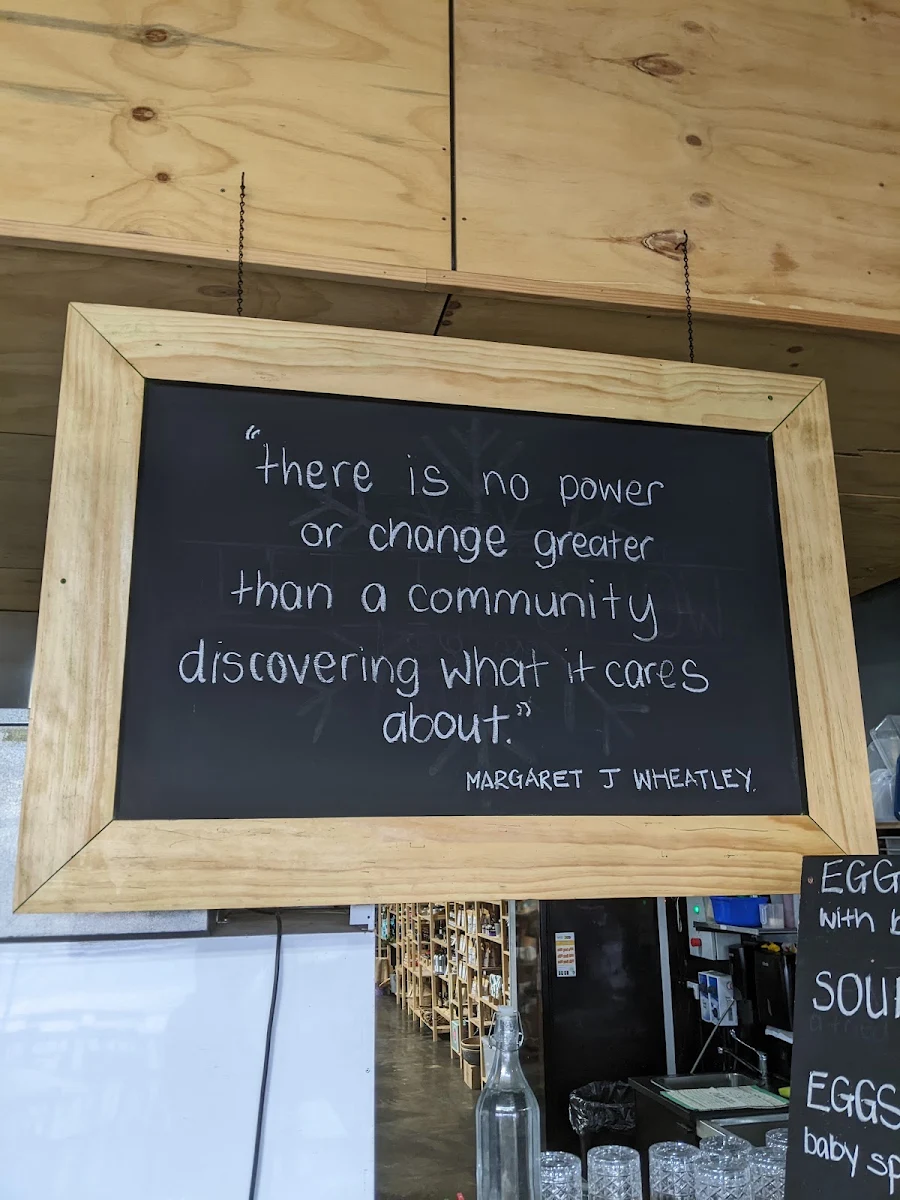 “there is no power
or change greater
than a community
discovering what it cares
about.”
MARGARET J WHEATLEY.
with
EGGS
baby